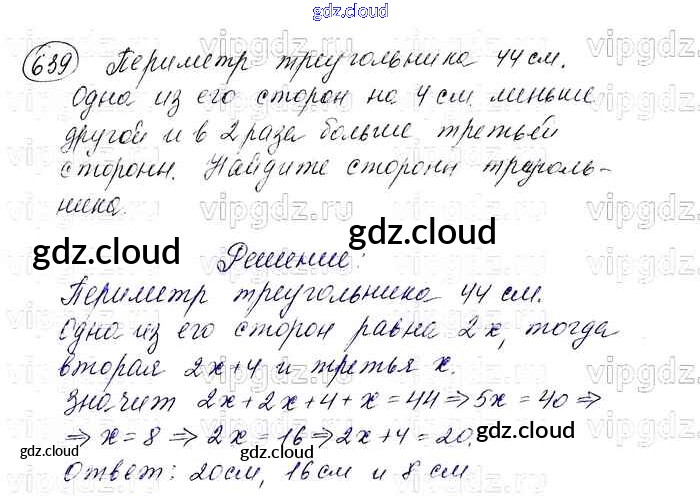 gdz.cloud
639 Периметр треугольника 44 см.
Одна из его сторон на 4 см меньше
другой и в 2 раза больше третьей
стороны. Найдите стороны треуголь-
ника.
gdz.cloud gdz.cloud
Решение:
Периметр треугольника 44 см.
Одна из его сторон равна 2x, тогда
вторая 2x+4 и третья x.
Значит 2x+2x+4+x=44⇒5x=40⇒
⇒x=8⇒2x=16⇒2x+4=20.
gdz.cloud gdz.cloud
Ответ: 20см, 16см и 8 см
vipgdz.ru